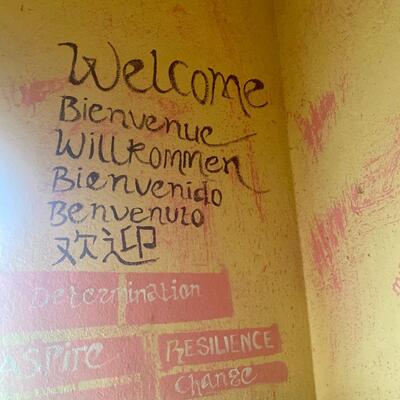 Welcome
Bienvenue
Willkommen
Bienvenido
Benvenuto
欢迎
Determination
ASPIRE
RESILIENCE
Change